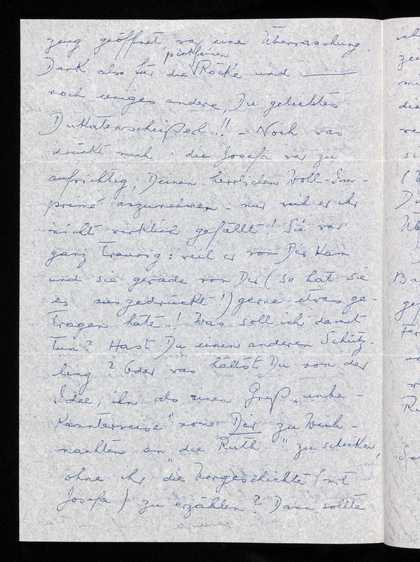 zeug geöffnet war eine Überraschung.
pickfeinen
Dank also für die Röcke und ———
noch einiges andere, Du geliebter
Dukatenscheißerl!! – Noch was
drückt mich: die Josefa war zu
aufrichtig, Deinen herrlichen Woll-Im-
primé anzunehmen – nur weil er ihr
nicht wirklich gefällt! Sie war
ganz traurig: weil er von Dir kam
und sie gerade von Dir (so hat sie
es ausgedrückt!) gerne etwas ge-
tragen hätte! Was soll ich damit
tun? Hast Du einen anderen Schütz-
ling? Oder was hältst Du von der
Idee, ihn als einen Gruß „unbe-
kannterweise" von Dir zu Weih-
nachten an „die Ruth" zu schicken,
ohne ihr die Vorgeschichte (mit
Josefa) zu erzählen? Dann sollte